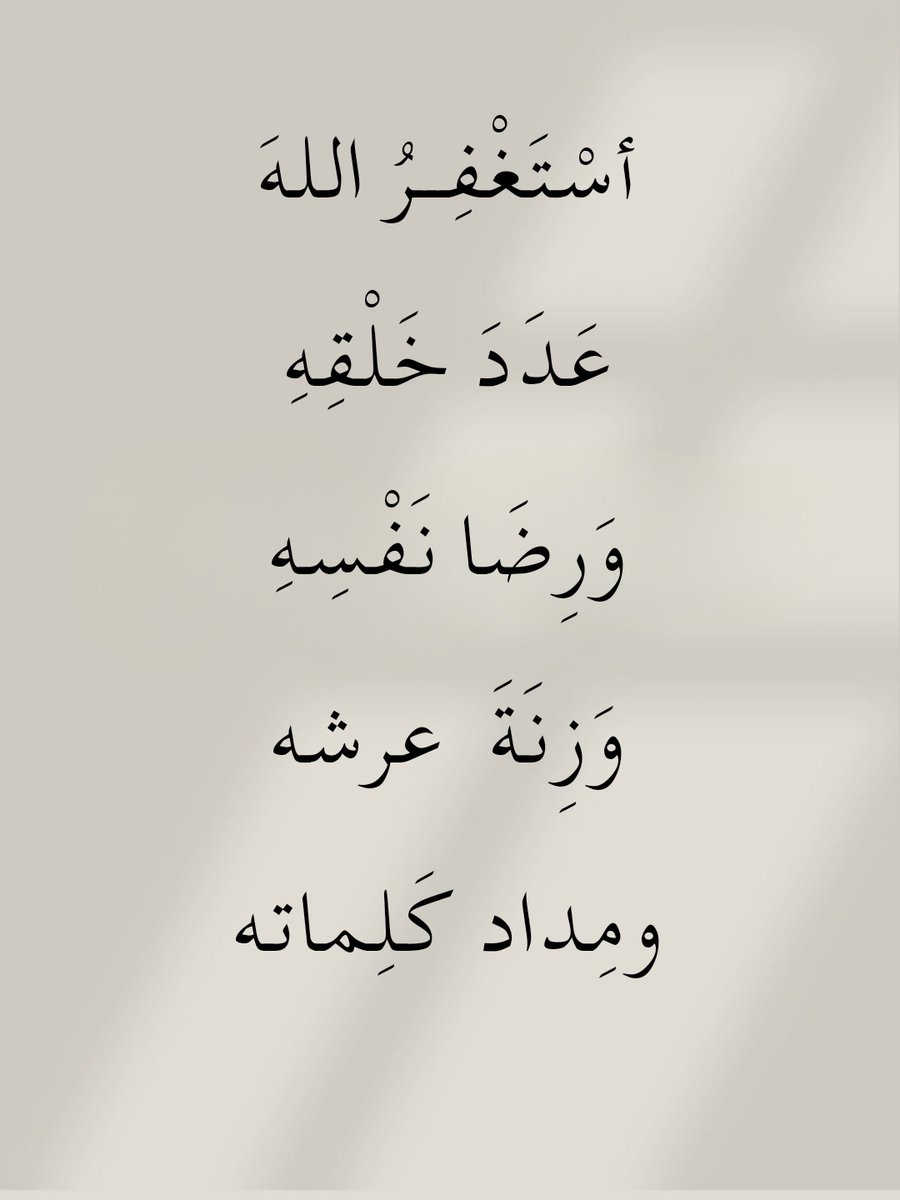 أسْتَغْفِـرُ اللهَ
عَدَدَ خَلْقِهِ
وَرِضَا نَفْسِهِ
وَزِنَةَ عرشه
ومِداد كَلِماته